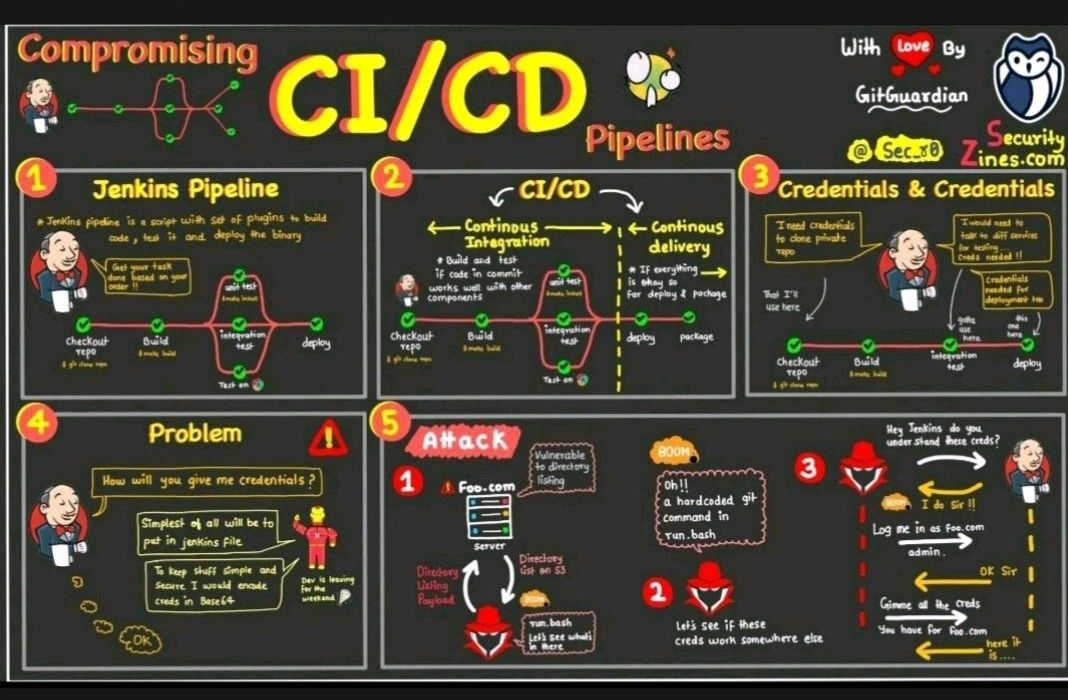 Compromising
CI/CD
Pipelines
With Love By
GitGuardian
@ Sec_r0
Security
Zines.com
1
Jenkins Pipeline
* Jenkins pipeline is a script with set of plugins to build
code, test it and deploy the binary
Get your task
done based on your
order !!
unit test
integration
test
Test on
Checkout
repo
$ git clone repo
Build
$ make build
deploy
2
CI/CD
Continous
Integration
* Build and test
if code in commit
works well with other
components
Continous
delivery
* If everything
is okay so
far deploy & package
unit test
integration
test
Test on
Checkout
repo
$ git clone repo
Build
$ make build
deploy
package
3
Credentials & Credentials
I need credentials
to clone private
repo
I would need to
talk to diff services
for testing
creds needed !!
Credentials
needed for
deployment too
That I'll
use here
gotta
use
here
this
one
here
Checkout
repo
$ git clone repo
Build
$ make build
integration
test
deploy
4
Problem
How will you give me credentials ?
Simplest of all will be to
put in jenkins file
To keep stuff simple and
secure I would encode
creds in Base64
Dev is leaving
for the
weekend
OK
5
Attack
1
Foo.com
Vulnerable
to directory
listing
server
Directory
Listing
Payload
Directory
list on S3
BOOM
run.bash
Let's see whats
in there
BOOM
Oh!!
a hardcoded git
command in
run.bash
2
Let's see if these
creds work somewhere else
3
Hey Jenkins do you
understand these creds?
BOOM
I do Sir !!
Log me in as foo.com
admin.
OK Sir
Gimme all the creds
You have for foo.com
here it
is....